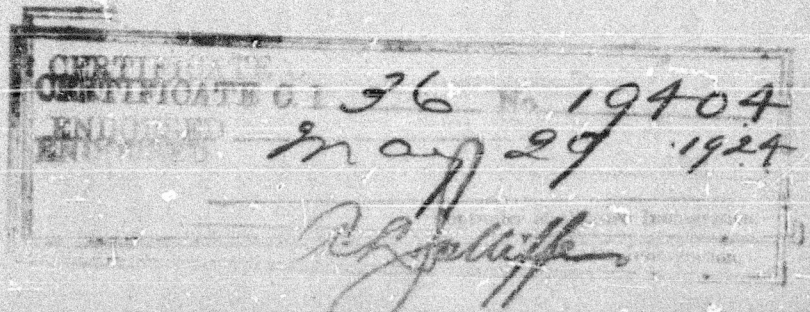 CERTIFICATE C I 36 No. 19404
ENDORSED May 29 1924
A L Jolliffe